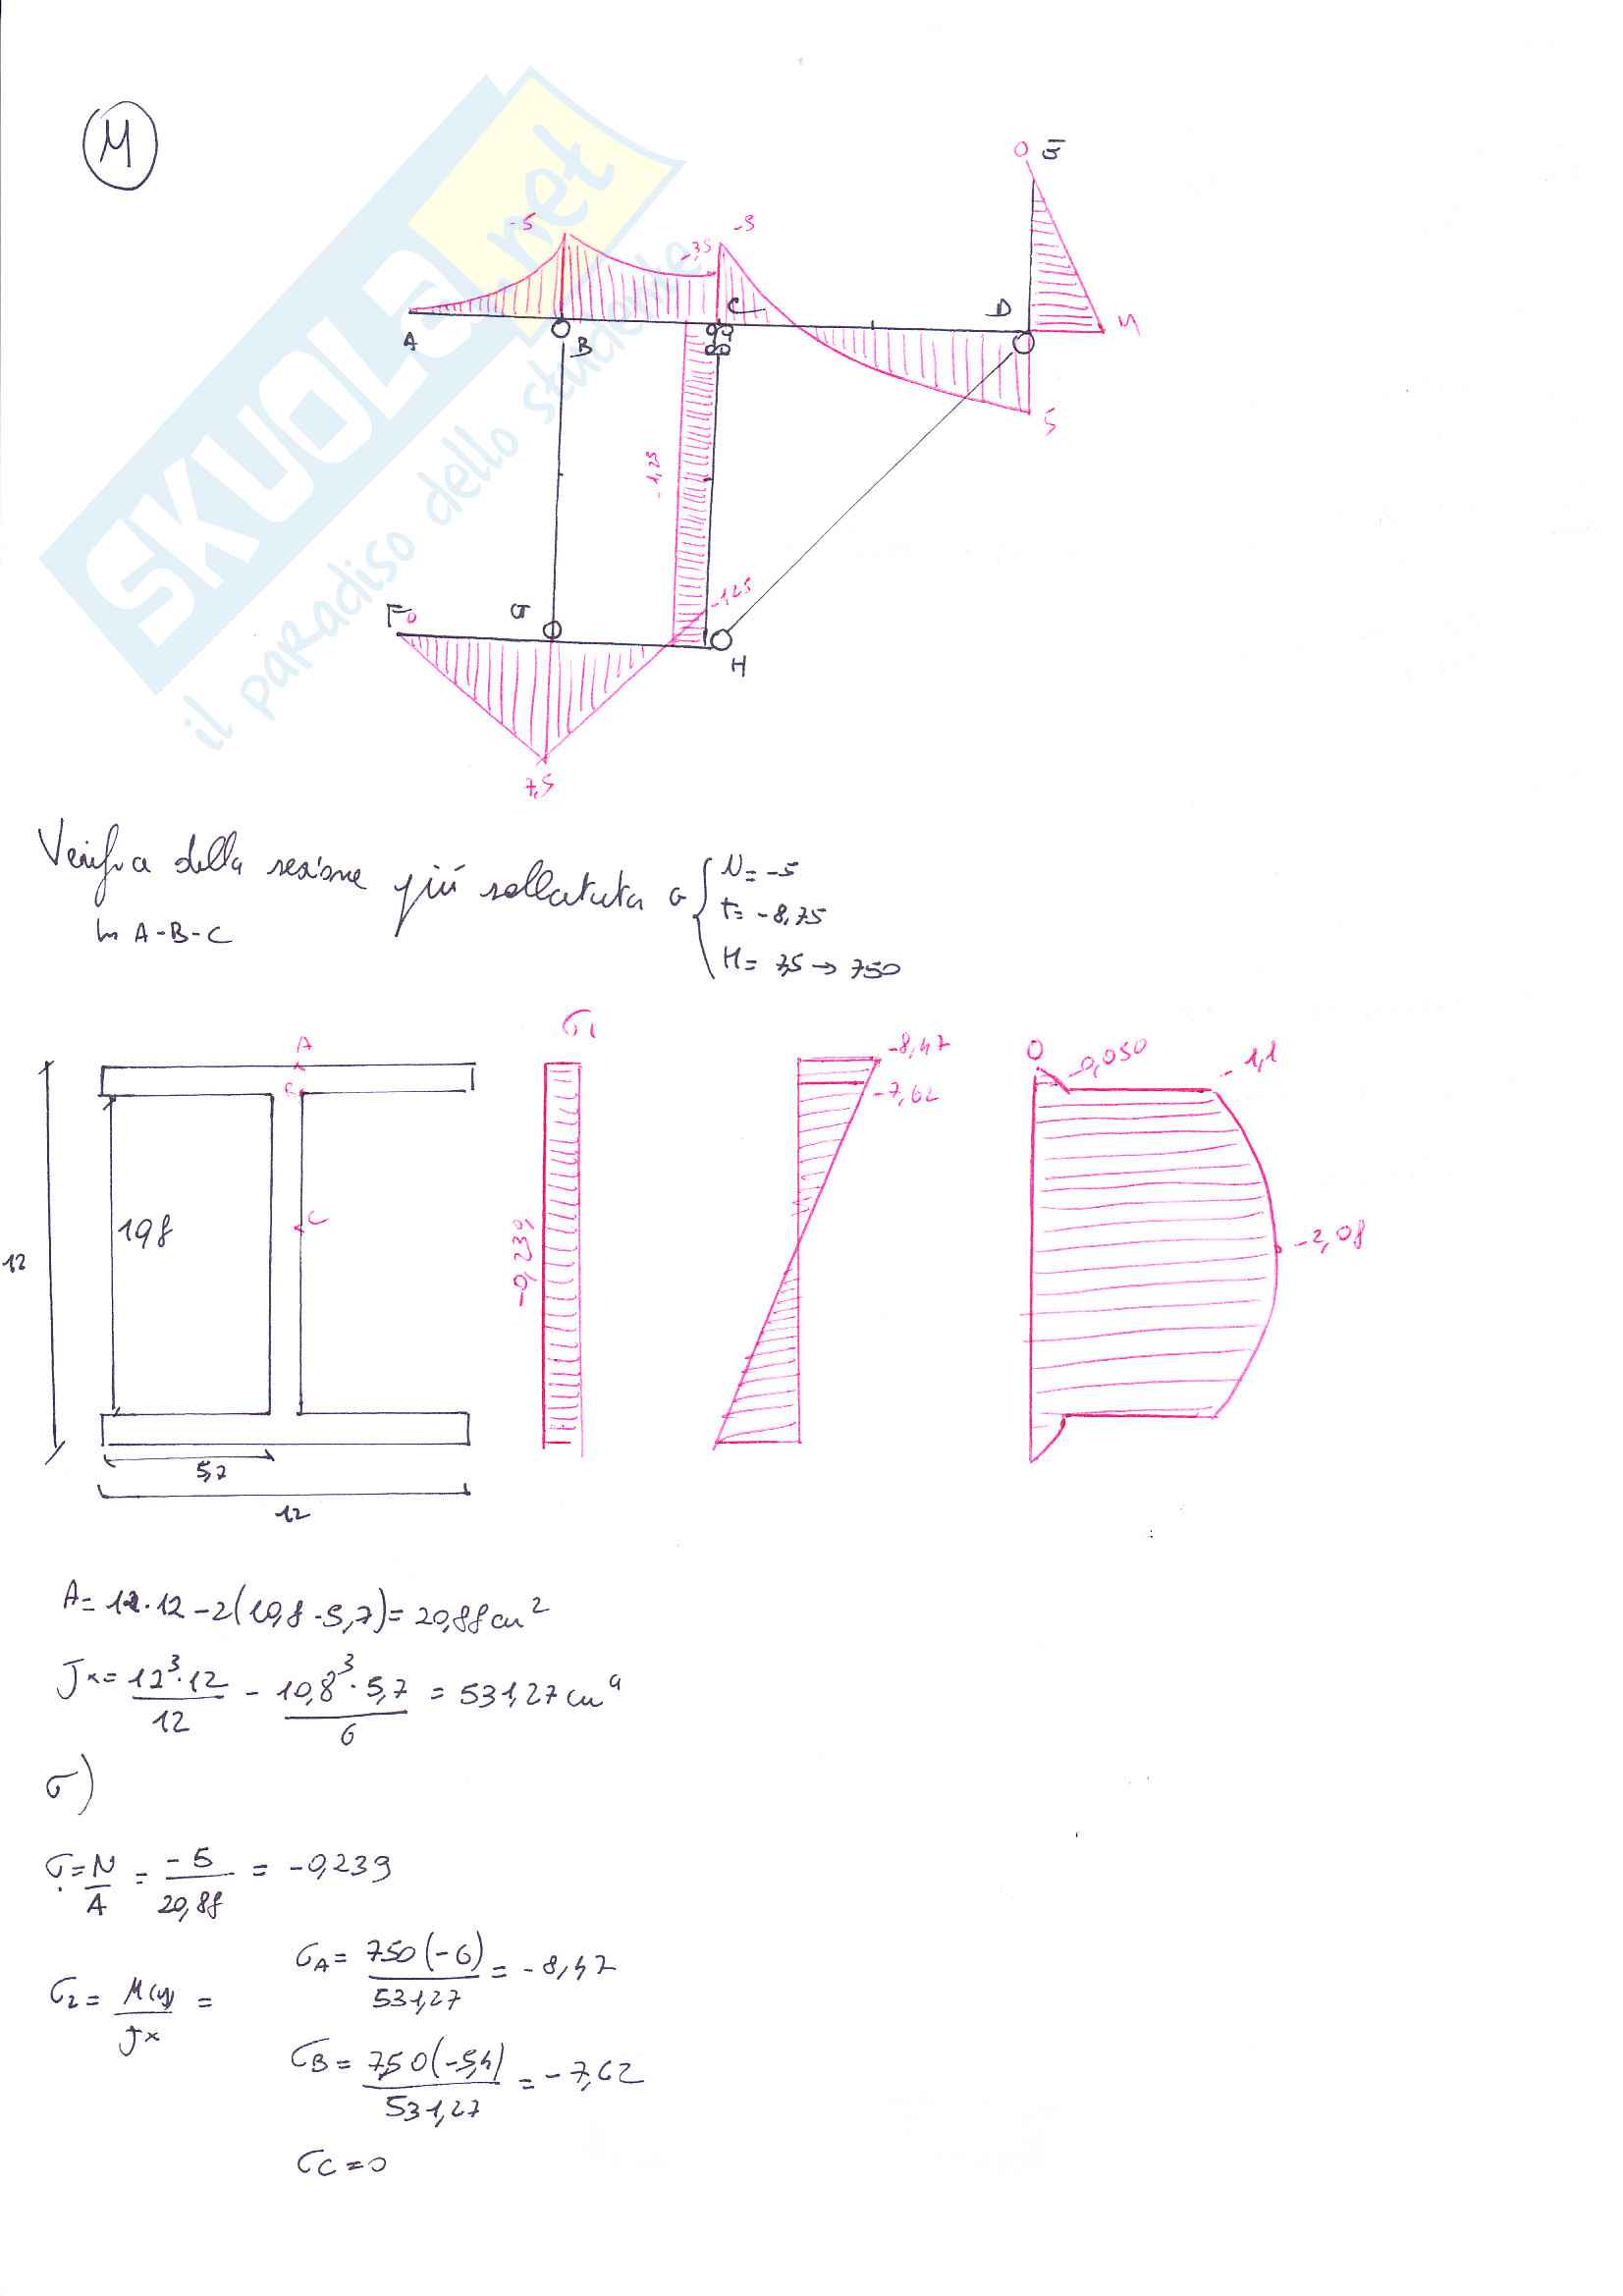 M
SKUOLA.net
il paradiso dello studente
O E
-5
-3,5
-3
A
B
C
D
4
5
-1,25
-1,25
F 0
G
H
7,5
Verifica della sezione più sollecitata a
in A-B-C
N = -5
t = -8,75
M = 7,5 → 750
A
B
C
12
10,8
5,7
12
σ1
-0,239
-8,47
-7,62
0
-0,050
-1,1
-2,08
A = 12·12 - 2(10,8·5,7) = 20,88 cm²
Jx = 12³·12/12 - 10,8³·5,7/6 = 531,27 cm⁴
σ)
σ = N/A = -5/20,88 = -0,239
σ2 = M(y)/Jx =
σA = 750(-6)/531,27 = -8,47
σB = 750(-5,4)/531,27 = -7,62
σC = 0